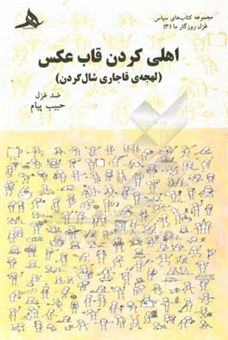 مجموعه کتاب‌های سپاس
غزل روزگار ما (۳)
اهلی کردن قاب عکس
(لهجه‌ی قاجاری شال گردن)
ضد غزل
حبیب پیام